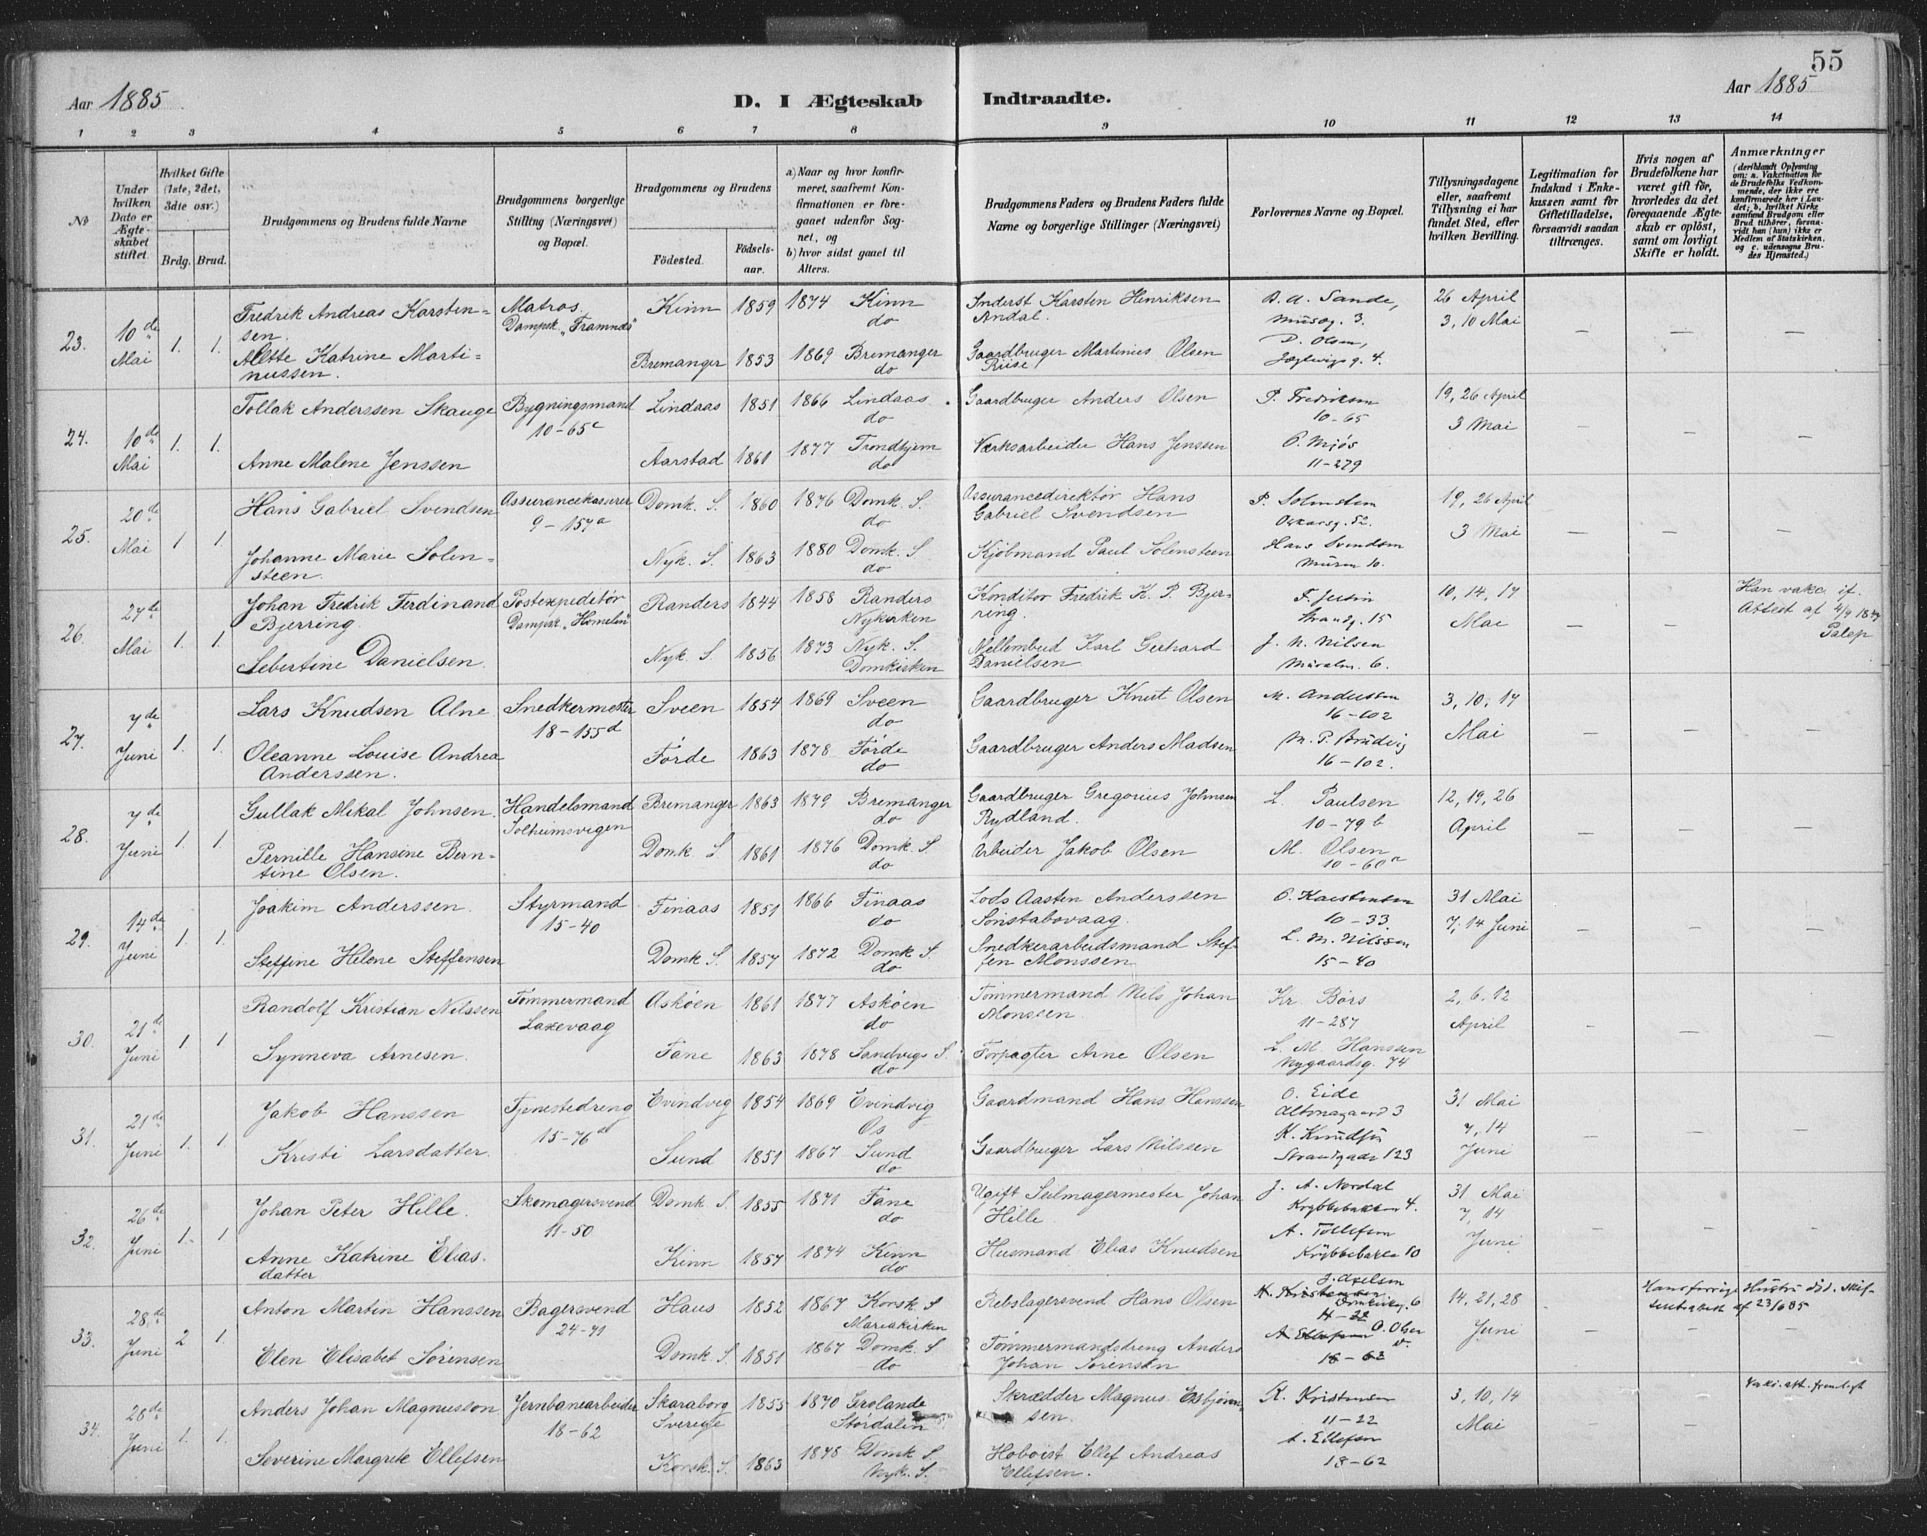 55
Aar 1885 D. I Ægteskab Indtraadte. Aar 1885
1 2 3 4 5 6 7 8 9 10 11 12 13 14
№
Under hvilken Dato er Ægteskabet stiftet.
Hvilket Gifte (1ste, 2det, 3die osv.)
Brdg. Brud.
Brudgommens og Brudens fulde Navne
Brudgommens borgerlige Stilling (Næringsvei) og Bopæl.
Brudgommens og Brudens
Fødested.
Fødsels-aar.
a) Naar og hvor konfirmeret, saafremt Konfirmationen er foregaaet udenfor Sognet, og
b) hvor sidst gaaet til Alters.
Brudgommens Faders og Brudens Faders fulde Navne og borgerlige Stillinger (Næringsvei)
Forlovernes Navne og Bopæl.
Tillysningsdagene eller, saafremt Tillysning ei har fundet Sted, efter hvilken Bevilling.
Legitimation for Indskud i Enkekassen samt for Giftetilladelse, forsaavidt saadan tiltrænges.
Hvis nogen af Brudefolkene har været gift før, hvorledes da det foregaaende Ægteskab er opløst, samt om lovligt Skifte er holdt.
Anmærkninger
23. 10de Mai 1. 1. Fredrik Andreas Karstensen. Matros. Dampsk. "Framnæs" Kinn 1859 1874 Kinn do Karsten Henriksen Andal. B. A. Sande, 26 April 3, 10 Mai
Alette Katrine Martinussen. Bremanger 1853 1869 Bremanger do Gaardbruger Martinius Olsen Riise D. Olsen,
24. 10de Mai 1. 1. Tollak Anderssen Skauge Bygningsmand 10-65c Lindaas 1851 1866 Lindaas do Gaardbruger Anders Olsen P. Fredriksen 10-65 19, 26 April 3 Mai
Anne Malene Jenssen Aarstad 1861 1877 Trondhjem do Værksarbeider Hans Jenssen O. Mjøs 11-279
25. 20de Mai 1. 1. Hans Gabriel Svendsen Assurancekasserer 9-157a Domk. S. 1860 1876 Domk. S. do Assurancedirektør Hans Gabriel Svendsen P. Solensteen Oskarsg. 52. 19, 26 April 3 Mai
Johanne Marie Solensteen. Nyk. S. 1863 1880 Domk. S do Kjøbmand Paul Solensteen Hans Svendsen Muren 10.
26. 27de Mai 1. 1. Johan Fredrik Ferdinand Bjerring. Postexpeditør Dampsk. "Homelin" Randers 1844 1858 Randers Nykirken Konditor Fredrik K. P. Bjerring. Strandg. 15 10, 14, 17 Mai Han vakc. if. Attest af
Sebertine Danielsen. Nyk. S 1856 1873 Nyk. S. Domkirken Karl Gerhard Danielsen J. M. Nilsen Muralm. 6.
27. 7de Juni 1. 1. Lars Knudsen Alne Snedkermester 18-155d Sveen 1854 1869 Sveen do Gaardbruger Knut Olsen M. Anderssen 16-102 3, 10, 17 Mai
Oleanne Louise Andrea Anderssen. Førde 1863 1878 Førde do Gaardbruger Anders Madsen 16-102.
28. 7de Juni 1. 1. Gullak Mikal Johnsen. Handelsmand Solheimsvigen Bremanger 1863 1879 Bremanger do Gaardbruger Gregorius Johnsen Rydland. L. Paulsen 10-79b 12, 19, 26 April
Pernille Hansine Berntine Olsen. Domk S 1861 1876 Domk. S do Arbeider Jakob Olsen M. Olsen 10-60a
29. 14de Juni 1. 1. Joakim Anderssen. Styrmand 15-40 Finaas 1851 1866 Finaas do Lods Aasten Anderssen Sønstabovaag. O. Karstensen 10-33. 31 Mai 7, 14 Juni
Steffine Helene Steffensen Domk S. 1857 1872 Domk. S. do Snedkerarbeidsmand Steffen Monssen. L. M. Nilssen 15-40
30. 21de Juni 1 1 Randolf Kristian Nilssen Tømmermand Laxevaag Askøen 1861 1877 Askøen do Tømmermand Nils Johan Monssen. Kr. Børs 11-287 2, 6, 12 April
Synneva Arnesen. Fane 1863 1878 Sandvigs S. do Forpagter Arne Olsen L. M. Hanssen Nygaardsg. 74
31. 21de Juni 1. 1. Jakob Hanssen Tjenestedreng 15-76 Evindvig 1854 1869 Evindvig Os Gaardmand Hans Hanssen O. Eide Altonagaard 3 31 Mai 7, 14 Juni
Kristi Larsdatter. Sund 1851 1867 Sund do Gaardbruger Lars Nilssen Strandgade 123
32. 26de Juni 1. 1 Johan Peter Hille. Skomagersvend 11-50 Domk S. 1855 1871 Fane do Ugift Seilmagermester Johan Hille. J. A. Nordal Krybbebakken 4. 31 Mai 7, 14 Juni
Anne Katrine Eliasdatter Kinn 1857 1874 Kinn do Husmand Elias Knudsen A. Tollefsen Krybbebakken 10
33. 28de Juni 2 1. Anton Martin Hanssen Bagersvend 24-71 Haus 1852 1867 Korsk. S Mariakirken Rebslagersvend Hans Olsen J. Axelsen K. Kristensen 11-22 14, 21, 28 Juni Hans forrige Hustru død. af 23/6 85
Elen Elisabet Sørensen Domk. S. 1851 1867 Domk. S do Tømmermandsdreng Anders Johan Sørensen A. Ellefsen O. Olsen 18-62
34. 28de Juni 1. 1. Anders Johan Magnusson Jernbanearbeider 18-62 Skaraborg Sverige 1855 1870 Grolanda Stordalen Skrædder Magnus Esbjørnsen. K. Kristensen 11-22 3, 10, 14 Mai Vakc. att. fremlagt
Severine Margrete Ellefsen Korsk. S. 1863 1878 Domk. S Nyk. S. Hoboist Ellef Andreas Ellefsen. A. Ellefsen 18-62